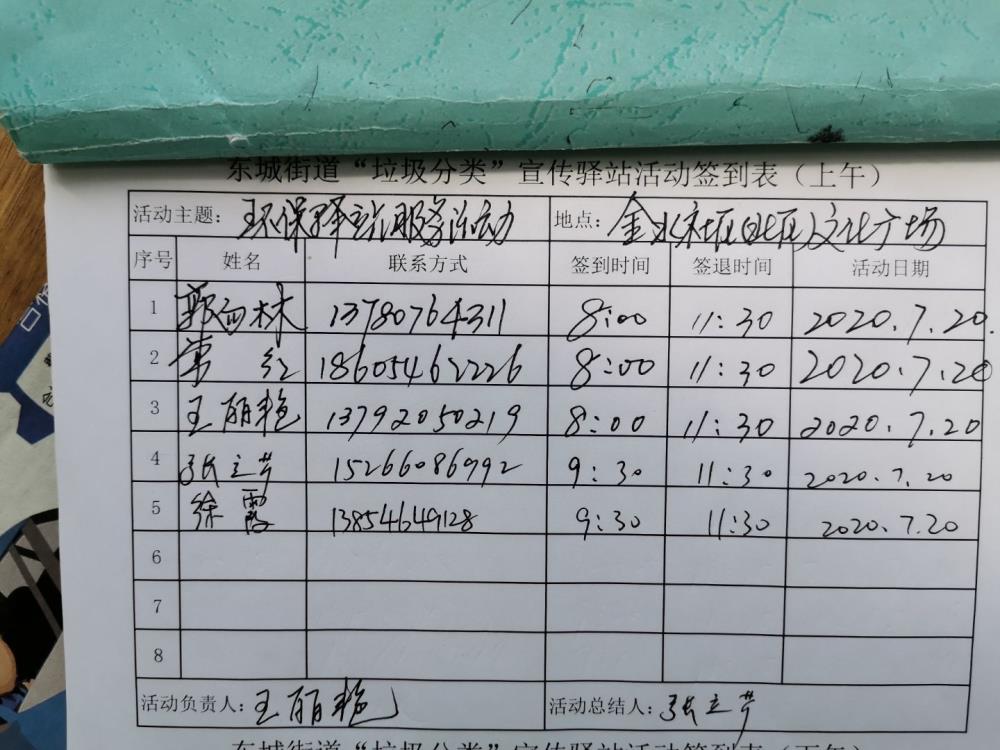 东城街道“垃圾分类”宣传驿站活动签到表（上午）
活动主题：环保驿站服务活动 地点：金水社区文化广场
序号 姓名 联系方式 签到时间 签退时间 活动日期
1 郭 林 13780764311 8:00 11:30 2020.7.20.
2 常红 18605462226 8:00 11:30 2020.7.20
3 王丽艳 13792050219 8:00 11:30 2020.7.20
4 张立芹 15266086992 9:30 11:30 2020.7.20
5 徐霞 13854649128 9:30 11:30 2020.7.20
6
7
8
活动负责人：王丽艳 活动总结人：张立芹
东城街道“垃圾分类”宣传驿站活动签到表（下午）